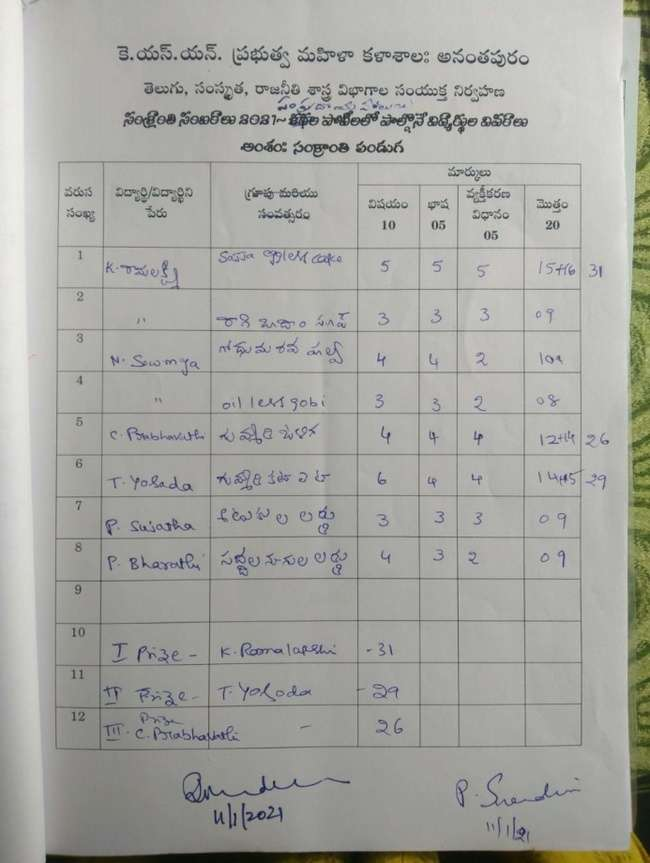 కె.యస్.యన్. ప్రభుత్వ మహిళా కళాశాల: అనంతపురం
తెలుగు, సంస్కృత, రాజనీతి శాస్త్ర విభాగాల సంయుక్త నిర్వహణ
సంక్రాంతి సంబరాలు 2021- పోటీలలో పాల్గొనే విద్యార్థుల వివరాలు
అంశం: సంక్రాంతి పండుగ
వరుస సంఖ్య విద్యార్థి/విద్యార్థిని పేరు గ్రూపు మరియు సంవత్సరం మార్కులు
విషయం 10 భాష 05 వ్యక్తీకరణ విధానం 05 మొత్తం 20
1 K. రామలక్ష్మి eggless cake 5 5 5 15+16 31
2 " రాగి బాదం 3 3 3 09
3 N. Sowmya గోధుమ రవ 4 4 2 10
4 " oil less gobi 3 3 2 08
5 C. Prabhavathi 4 4 4 12+14 26
6 T. Yosada 6 4 4 14+15 29
7 P. Sujatha అటుకుల లడ్డు 3 3 3 09
8 P. Bharathi సద్దల నువ్వుల లడ్డు 4 3 2 09
9
10 I Prize - K. Ramalakshi - 31
11 II Prize - T. Yosoda - 29
12 III Prize - C. Prabhavathi - 26
11/1/2021
11/1/21